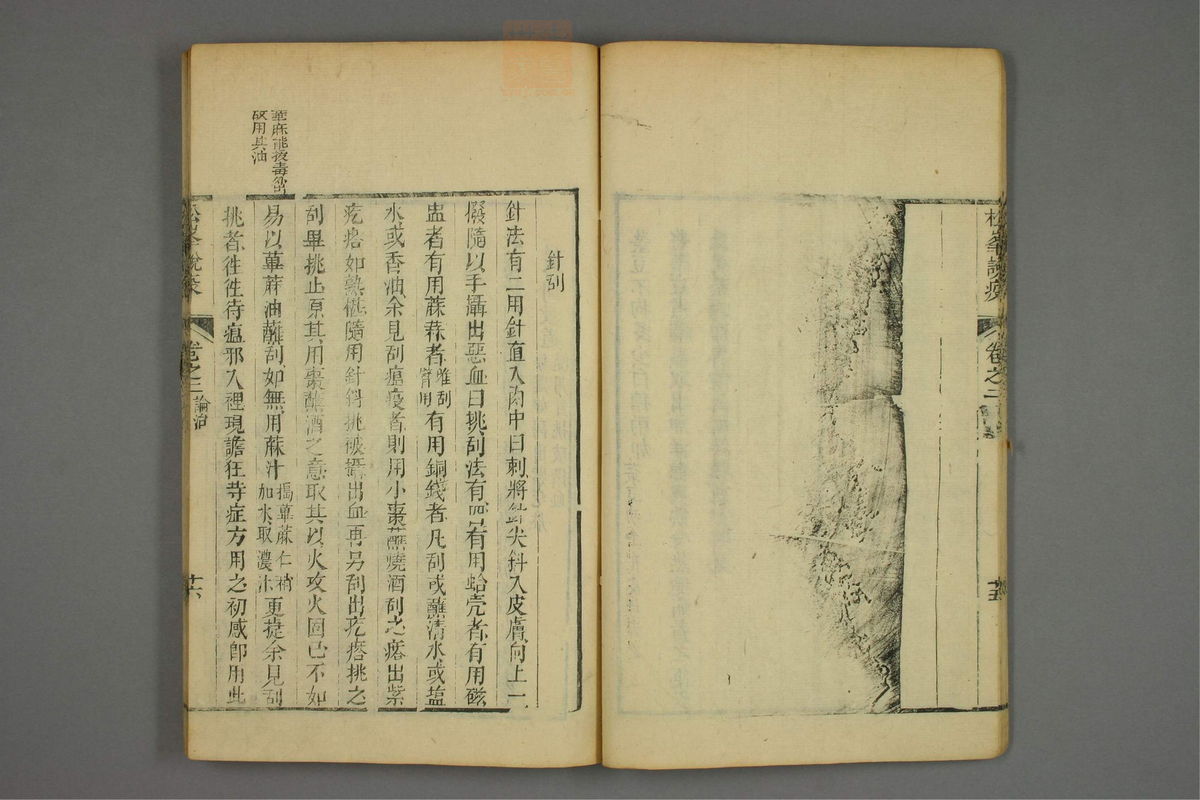 松峯説疫
卷之二
十五
針刮
針法有二用針直入肉中曰刺將針尖斜入皮膚向上一
撥隨以手攝出惡血曰挑刮法有四有用蛤壳者有用磁
盅者有用蔴蕬者有用銅錢者凡刮或蘸清水或塩
水或香油余見刮瘟疫者則用小棗蘸燒酒刮之㾦出紫
疙㾦如熟椹隨用針斜挑破攝出血再另刮出疙㾦挑之
刮畢挑止原其用棗蘸酒之意取其以火攻火固已不如
易以萆蔴油蘸刮如無用蔴汁搗萆蔴仁稍加水取濃汁更捷余見刮
挑者徃徃待瘟邪入裡現譫狂等症方用之初感即用此
萆麻能拔毒外出故用其油
松峯説疫
卷之二
論治
十六